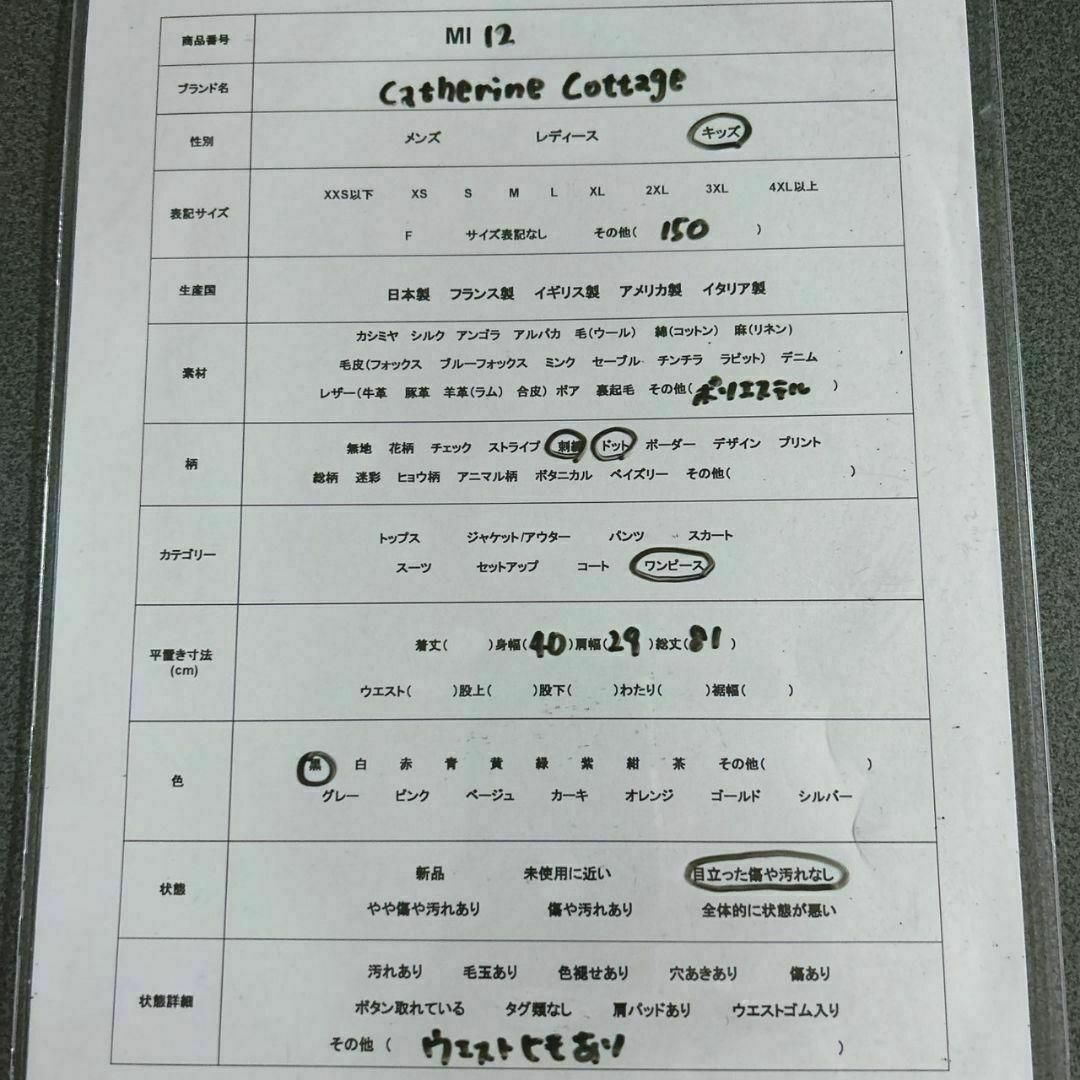 商品番号 MI 12
ブランド名 Catherine Cottage
性別 メンズ レディース キッズ
XXS以下 XS S M L XL 2XL 3XL 4XL以上
表記サイズ
F サイズ表記なし その他( 150 )
生産国 日本製 フランス製 イギリス製 アメリカ製 イタリア製
カシミヤ シルク アンゴラ アルパカ 毛(ウール) 綿(コットン) 麻(リネン)
素材 毛皮(フォックス ブルーフォックス ミンク セーブル チンチラ ラビット) デニム
レザー(牛革 豚革 羊革(ラム) 合皮) ボア 裏起毛 その他(ポリエステル )
柄 無地 花柄 チェック ストライプ 刺繍 ドット ボーダー デザイン プリント
総柄 迷彩 ヒョウ柄 アニマル柄 ボタニカル ペイズリー その他( )
トップス ジャケット/アウター パンツ スカート
カテゴリー
スーツ セットアップ コート ワンピース
着丈( )身幅(40)肩幅(29)総丈(81)
平置き寸法
(cm)
ウエスト( )股上( )股下( )わたり( )裾幅( )
色 黒 白 赤 青 黄 緑 紫 紺 茶 その他( )
グレー ピンク ベージュ カーキ オレンジ ゴールド シルバー
状態 新品 未使用に近い 目立った傷や汚れなし
やや傷や汚れあり 傷や汚れあり 全体的に状態が悪い
汚れあり 毛玉あり 色褪せあり 穴あきあり 傷あり
状態詳細 ボタン取れている タグ類なし 肩パッドあり ウエストゴム入り
その他 ( ウエストヒモあり )